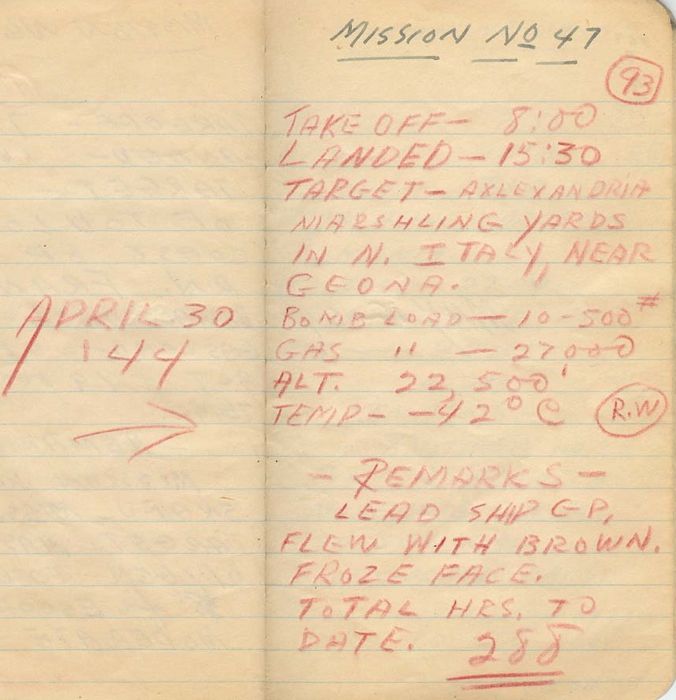 MISSION NO 47
93
TAKE OFF— 8:00
LANDED—15:30
TARGET— AXLEXANDRIA
MARSHLING YARDS
IN N. ITALY, NEAR
GEONA.
APRIL 30
'44
BOMB LOAD—10-500#
GAS " — 27000
ALT. 22,500'
TEMP— -42° C
R.W
- REMARKS -
LEAD SHIP GP,
FLEW WITH BROWN.
FROZE FACE.
TOTAL HRS. TO
DATE. 288